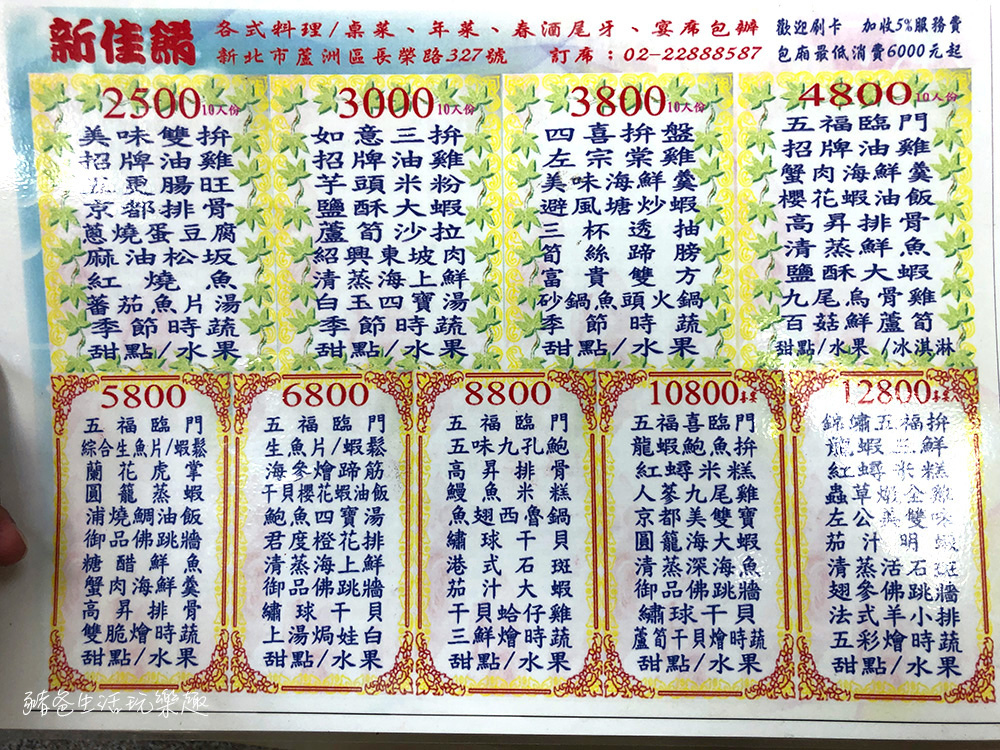 新佳
各式料理/桌菜、年菜、春酒尾牙、宴席包辦
新北市蘆洲區長榮路327號 訂席：02-22888587
歡迎刷卡 加收5%服務費
包廂最低消費6000元起
2500 10人份
美味雙拚
招牌油雞
腸旺
京都排骨
蔥燒蛋豆腐
麻油松坂
紅燒魚
蕃茄魚片湯
季節時蔬
甜點/水果
3000 10人份
如意三拚
招牌油雞
芋頭米粉
鹽酥大蝦
蘆筍沙拉
紹興東坡肉
清蒸海上鮮
白玉四寶湯
季節時蔬
甜點/水果
3800 10人份
四喜拚盤
左宗棠雞
美味海鮮羹
避風塘炒蝦
三杯透抽
筍絲蹄膀
富貴雙方
砂鍋魚頭火鍋
季節時蔬
甜點/水果
4800 10人份
五福臨門
招牌油雞
蟹肉海鮮羹
櫻花蝦油飯
高昇排骨
清蒸鮮魚
鹽酥大蝦
九尾烏骨雞
百菇鮮蘆筍
甜點/水果/冰淇淋
5800
五福臨門
綜合生魚片/蝦鬆
蘭花虎掌
圓籠蒸蝦
浦燒鯛油飯
御品佛跳牆
糖醋鮮魚
蟹肉海鮮羹
高昇排骨
雙脆燴時蔬
甜點/水果
6800
五福臨門
生魚片/蝦鬆
海參燴蹄筋
干貝櫻花蝦油飯
鮑魚四寶湯
君度橙花排
清蒸海上鮮
御品佛跳牆
繡球干貝
上湯焗娃白
甜點/水果
8800
五福臨門
五味九孔鮑
高昇排骨
鰻魚米糕
魚翅西魯鍋
繡球干貝
港式石斑
茄汁大蝦
干貝蛤仔雞
三鮮燴時蔬
甜點/水果
10800
五福喜臨門
龍蝦鮑魚拚
紅蟳米糕
人蔘九尾雞
京都美雙寶
圓籠海大蝦
清蒸深海魚
御品佛跳牆
繡球干貝
蘆筍干貝燴時蔬
甜點/水果
12800
錦繡五福拚
龍蝦三鮮
紅蟳米糕
蟲草燉金雞
左公美雙味
茄汁明蝦
清蒸活石斑
翅參佛跳牆
法式羊小排
五彩燴時蔬
甜點/水果
豬爸生活玩樂趣